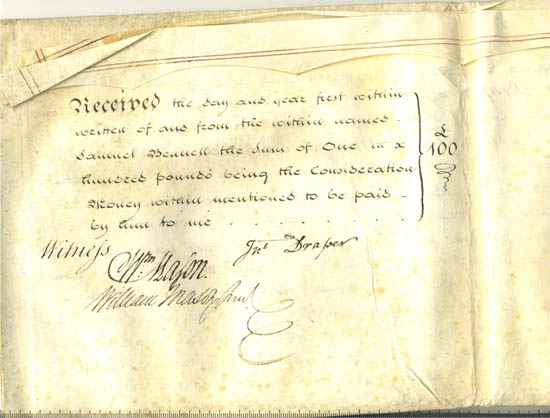 Received the day and year first within
written of and from the within named
Samuel Bennell the Sum of One
hundred pounds being the Consideration
Money within mentioned to be paid
by him to me . . . . . . .
£
100
Witness
Jnº Draper
Wm Mason.
William